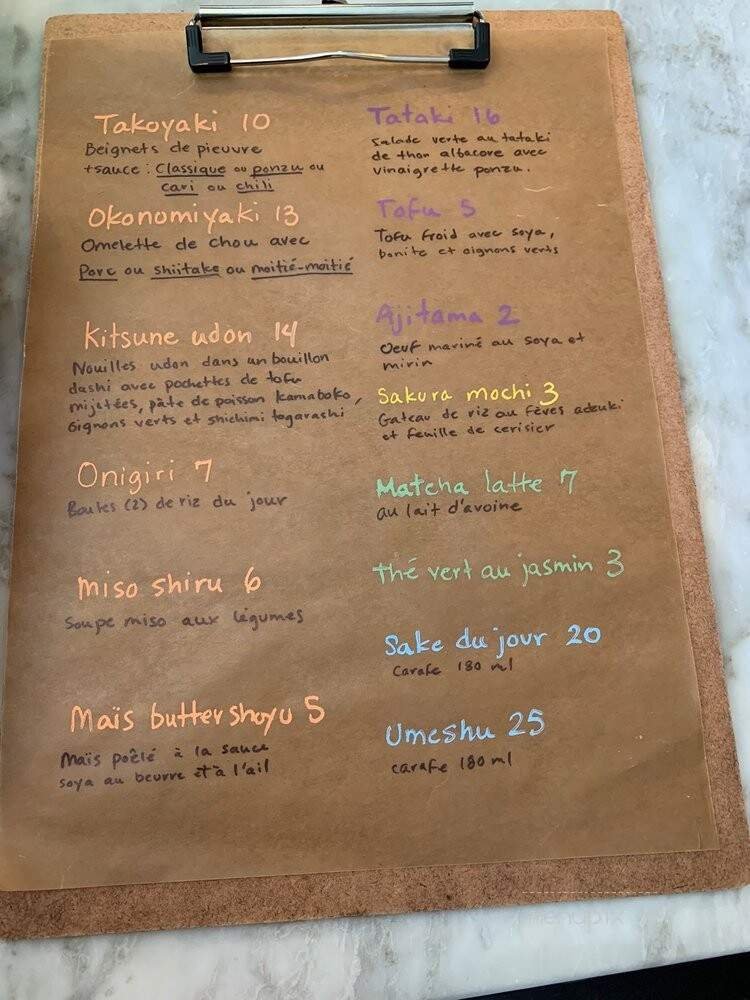 Takoyaki 10
Beignets de pieuvre
+sauce : Classique ou ponzu ou
cari ou chili
Okonomiyaki 13
Omelette de chou avec
Porc ou shiitake ou moitié-moitié
Kitsune udon 14
Nouilles udon dans un bouillon
dashi avec pochettes de tofu
mijotées, pâte de poisson kamaboko,
oignons verts et shichimi togarashi
Onigiri 7
Boules (2) de riz du jour
Miso shiru 6
Soupe miso aux légumes
Maïs butter shoyu 5
Maïs poêlé à la sauce
soya au beurre et à l'ail
Tataki 16
Salade verte au tataki
de thon albacore avec
vinaigrette ponzu.
Tofu 5
Tofu froid avec soya,
bonite et oignons verts
Ajitama 2
Oeuf mariné au soya et
mirin
Sakura mochi 3
Gateau de riz au fèves adzuki
et feuille de cerisier
Matcha latte 7
au lait d'avoine
Thé vert au jasmin 3
Sake du jour 20
Carafe 180 ml
Umeshu 25
carafe 180 ml